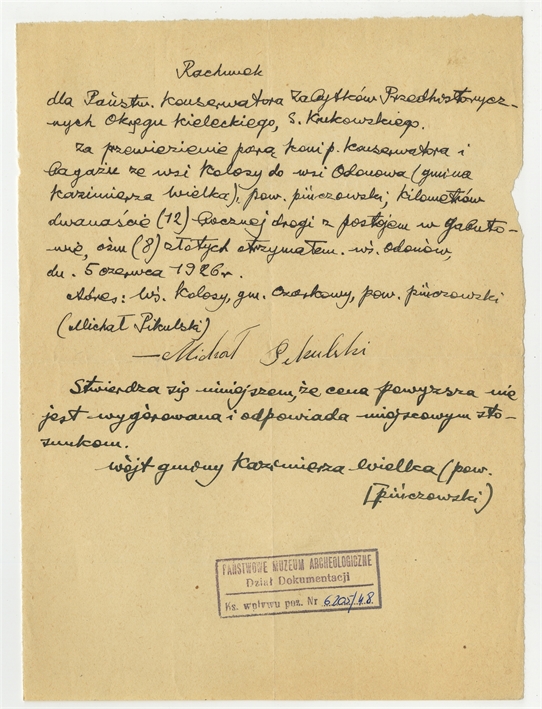 Rachunek
dla Państw. Konserwatora Zabytków Przedhistorycz-
nych Okręgu Kieleckiego, S. Krukowskiego.
Za przewiezienie parą koni p. Konserwatora i
bagażu ze wsi Kolosy do wsi Odonowa (gmina
Kazimierza Wielka), pow. pińczowski, kilometrów
dwanaście (12) bocznej drogi z postojem w Gabuto-
wie, ośm (8) złotych otrzymałem. wś. Odonów,
dn. 5 czerwca 1926 r.
Adres: wś. Kolosy, gm. Czarkowy, pow. pińczowski
(Michał Pikulski)
— Michał Pikulski
Stwierdza się niniejszem, że cena powyższa nie
jest wygórowana i odpowiada miejscowym sto-
sunkom.
wójt gminy Kazimierza Wielka (pow.
pińczowski)
PAŃSTWOWE MUZEUM ARCHEOLOGICZNE
Dział Dokumentacji
Ks. wpływu poz. Nr 6205/48